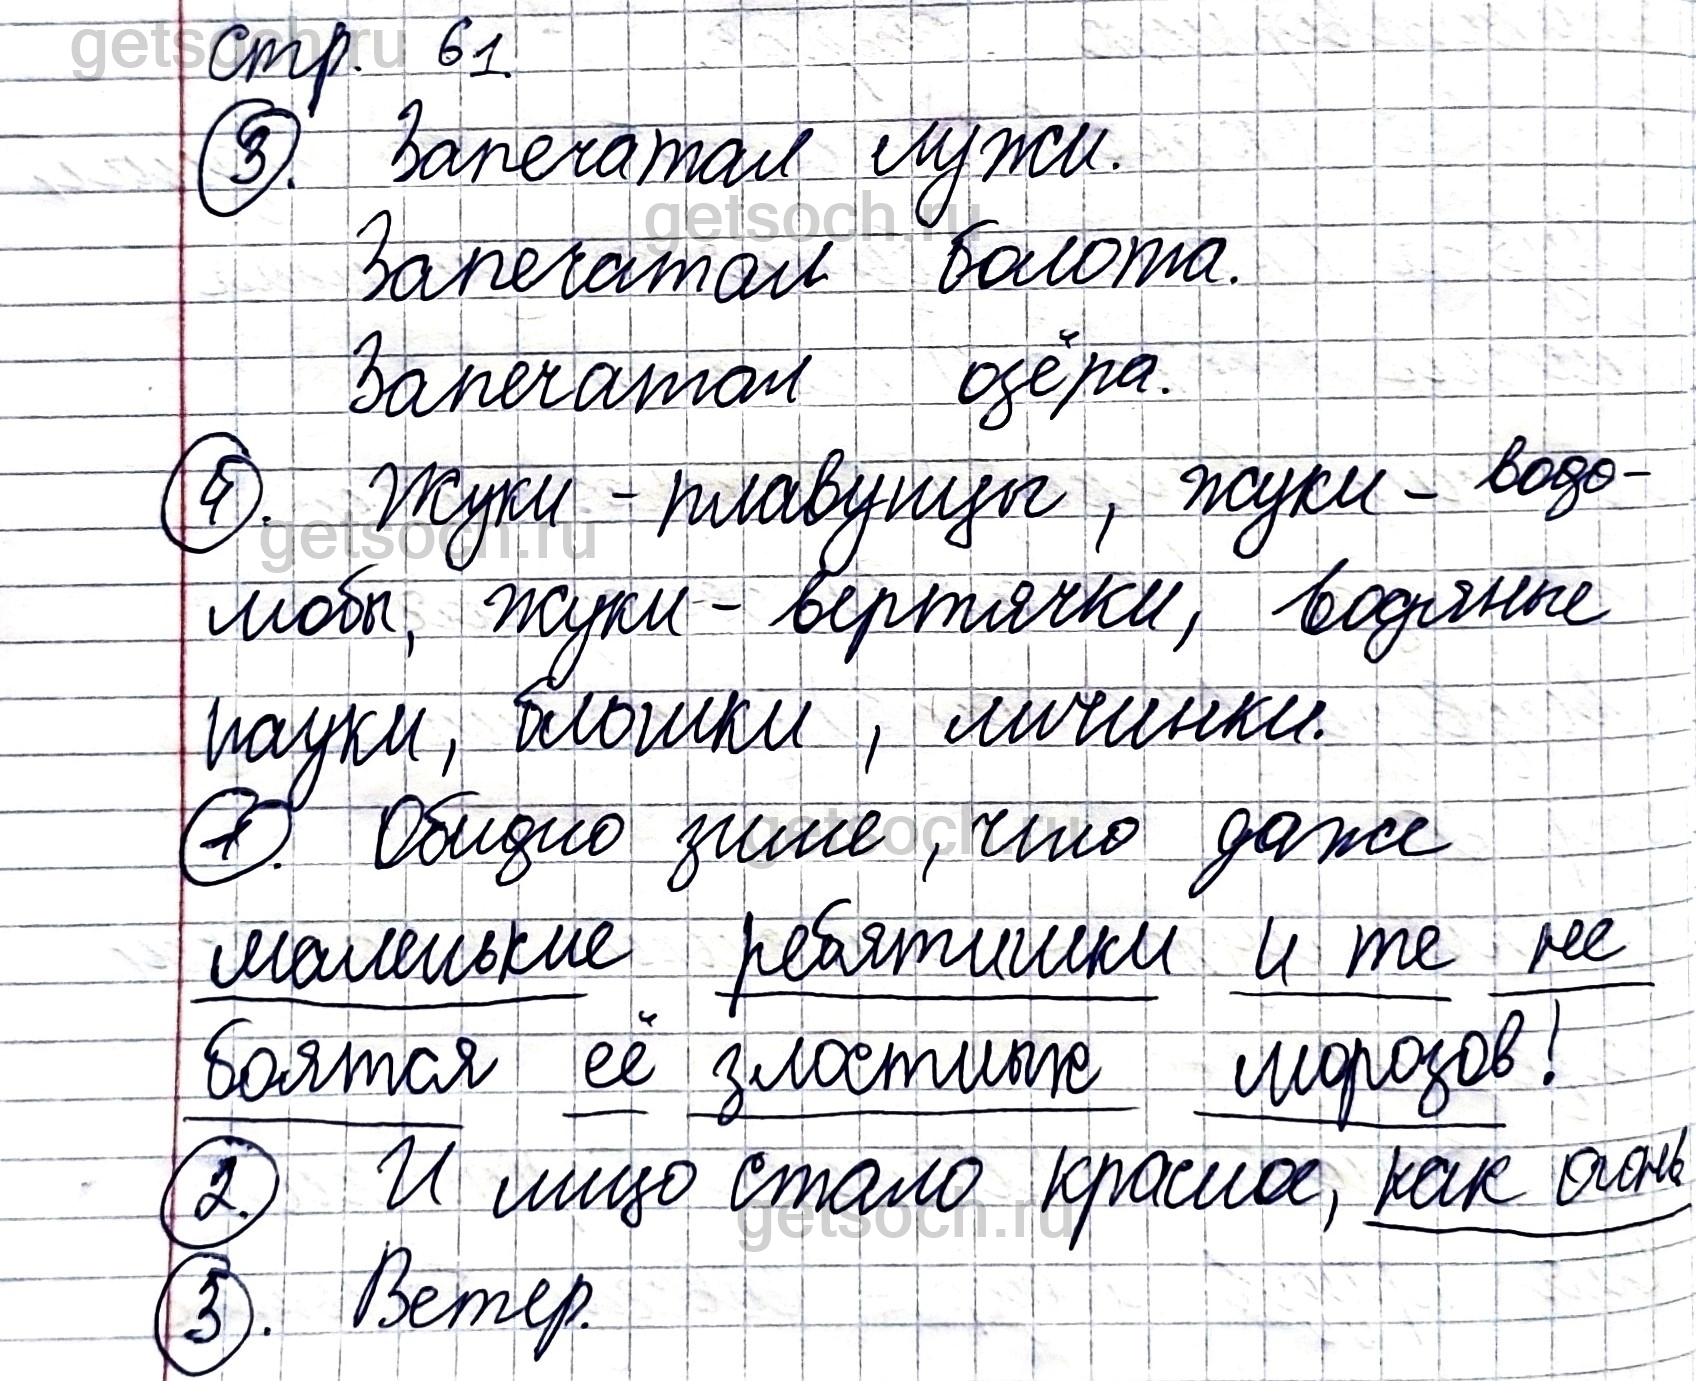 getsoch.ru
стр. 61.
3. Запечатал лужи.
getsoch.ru
Запечатал болота.
Запечатал озёра.
4. Жуки-плавунцы, жуки-водо-
getsoch.ru
любы, жуки-вертячки, водяные
пауки, блошки, личинки.
1. Обидно зиме, что даже
getsoch.ru
маленькие ребятишки и те не
боятся её злостных морозов!
2. И лицо стало красное, как огонь
getsoch.ru
3. Ветер.